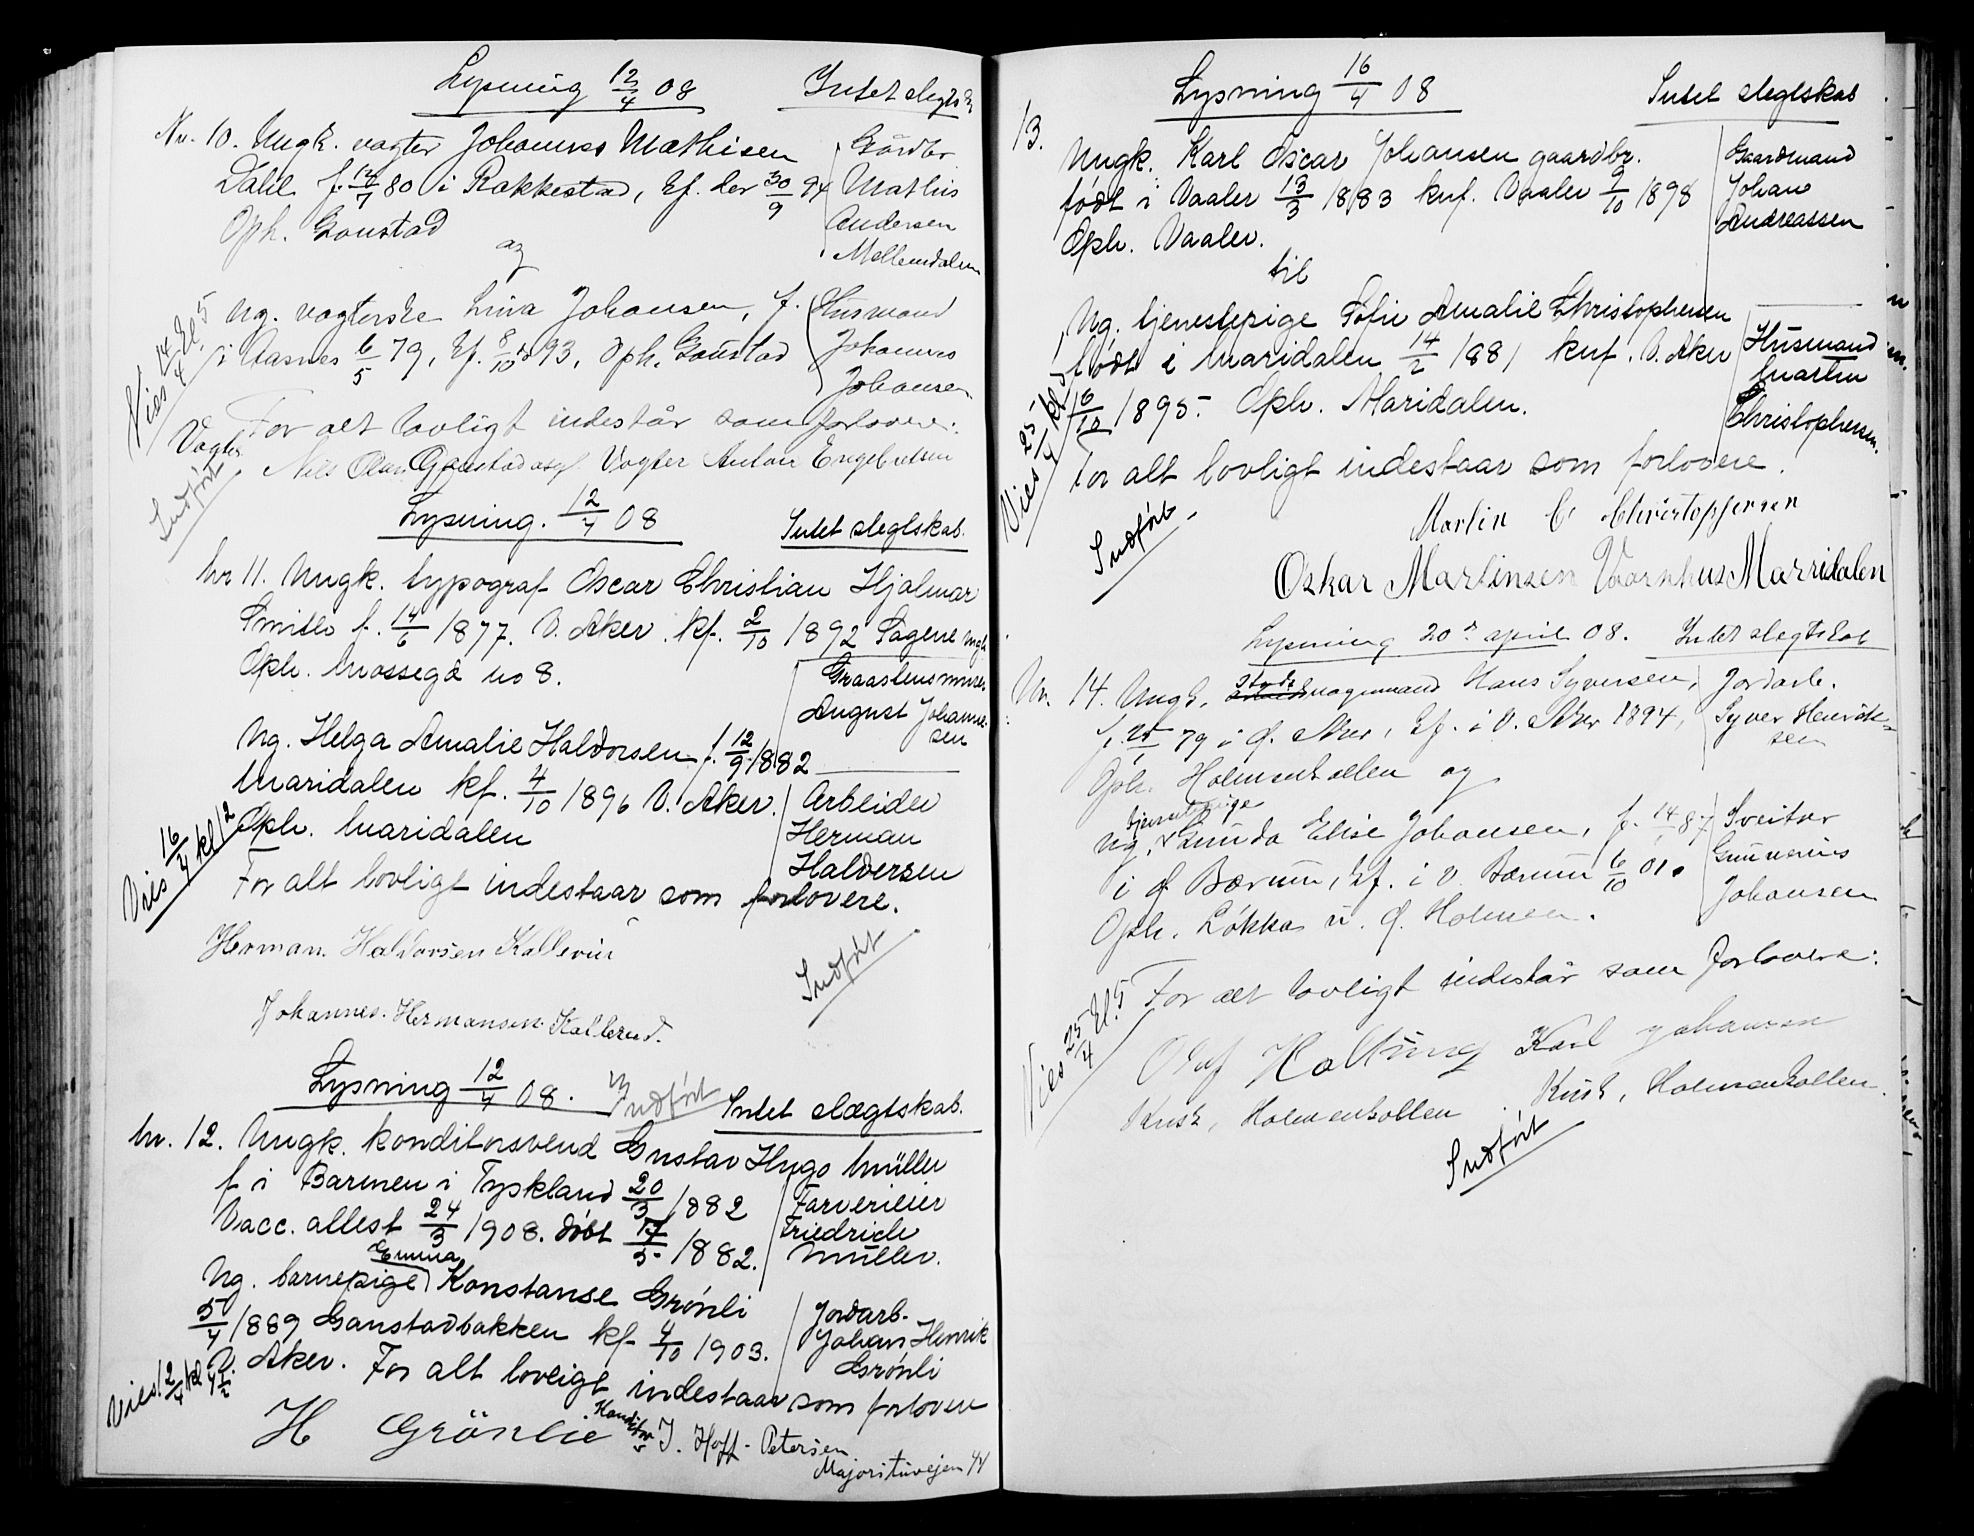 Lysning 12/4 08 Intet slegtsk
Nr. 10. Ungk. vagter Johannes Mathisen
Dahl f. 14/7 80 i Rakkestad, kf. der 30/9 94
Oph. Gaustad
Gårdbr
Mathis
Andersen
Mellemdalen
og
Ug. vagterske Lina Johansen, f.
i Aasnes 6/5 79, kf. 8/10 93, Oph. Gaustad
Husmand
Johannes
Johansen
Vies 14/4 kl. 5
For alt lovligt indestår som forlovere:
Vagter Nils Olsen Gaustad asyl Vagter Anton Engebretsen
Indført
Lysning. 12/4 08 Intet slegtskab.
Nr 11. Ungk. typograf Oscar Christian Hjalmar
Smith f. 14/6 1877. V. Aker. kf. 2/10 1892 Sagene
Oph. Mossegd no 8.
Graastensminer
August Johanne-
sen
Ug. Helga Amalie Haldorsen f. 12/9 1882
Maridalen kf. 4/10 1896 V. Aker.
Oph. Maridalen
Arbeider
Herman
Haldersen
Vies 16/4 kl 12
For alt lovligt indestaar som forlovere.
Herman. Haldorsen Kallerud
Indført
Johannes. Hermansen. Kallerud.
Lysning 12/4 08. Indført Intet slægtskab.
Nr. 12. Ungk. konditorsvend Gustav Hugo Müller
f i Barmen i Tyskland 20/3 1882
Vacc. attest 24/3 1908. døbt 17/5 1882.
Farverieier
Friedrich
Müller.
Emma
Ug. barnepige Konstanse Grønli
5/4 1889 Gaustadbakken kf. 4/10 1903.
V. Aker. For alt lovligt indestaar som forlovere
Jordarb.
Johan Henrik
Grønli
Vies 12/4 kl 4 1/2
H Grönlie Konditor J. Hoff-Petersen
Majorstuvejen 44
Lysning 16/4 08 Intet slegtskab
13.
Ungk. Karl Oscar Johansen gaardbr.
født i Vaaler 13/3 1883 knf. Vaaler 9/10 1898
Oph. Vaaler.
Gaardmand
Johan
Andreassen
til
Ug. tjenestepige Sofie Amalie Christophersen
født i Maridalen 14/2 1881 knf. V. Aker
6/10 1895. Oph. Maridalen.
Husmand
Martin
Christophersen.
Vies 25/4 kl 5
For alt lovligt indestaar som forlovere.
Indført.
Martin C Christophersen
Oskar Martinsen Vaarnhus Marridalen
Lysning 20de april 08. Intet slegtskab
Nr. 14. Ungk. vognmand Hans Syversen,
79 i Ø. Aker, kf. i V. Aker 1894,
Oph. Holmenkollen og
Jordarb.
Syver Henrik-
sen
tjenestepige
Ug. Gunda Elise Johansen, f. 87
i Ø. Bærum, kf. i V. Bærum 6/10 01.
Oph. Løkka u. Ø. Holmen.
Sveitser
Gunnerius
Johansen
Vies 25/4 kl. 5
For alt lovligt indestår som forlovere:
Olaf Holtung Karl Johansen
Kusk, Holmenkollen. Kusk, Holmenkollen
Indført